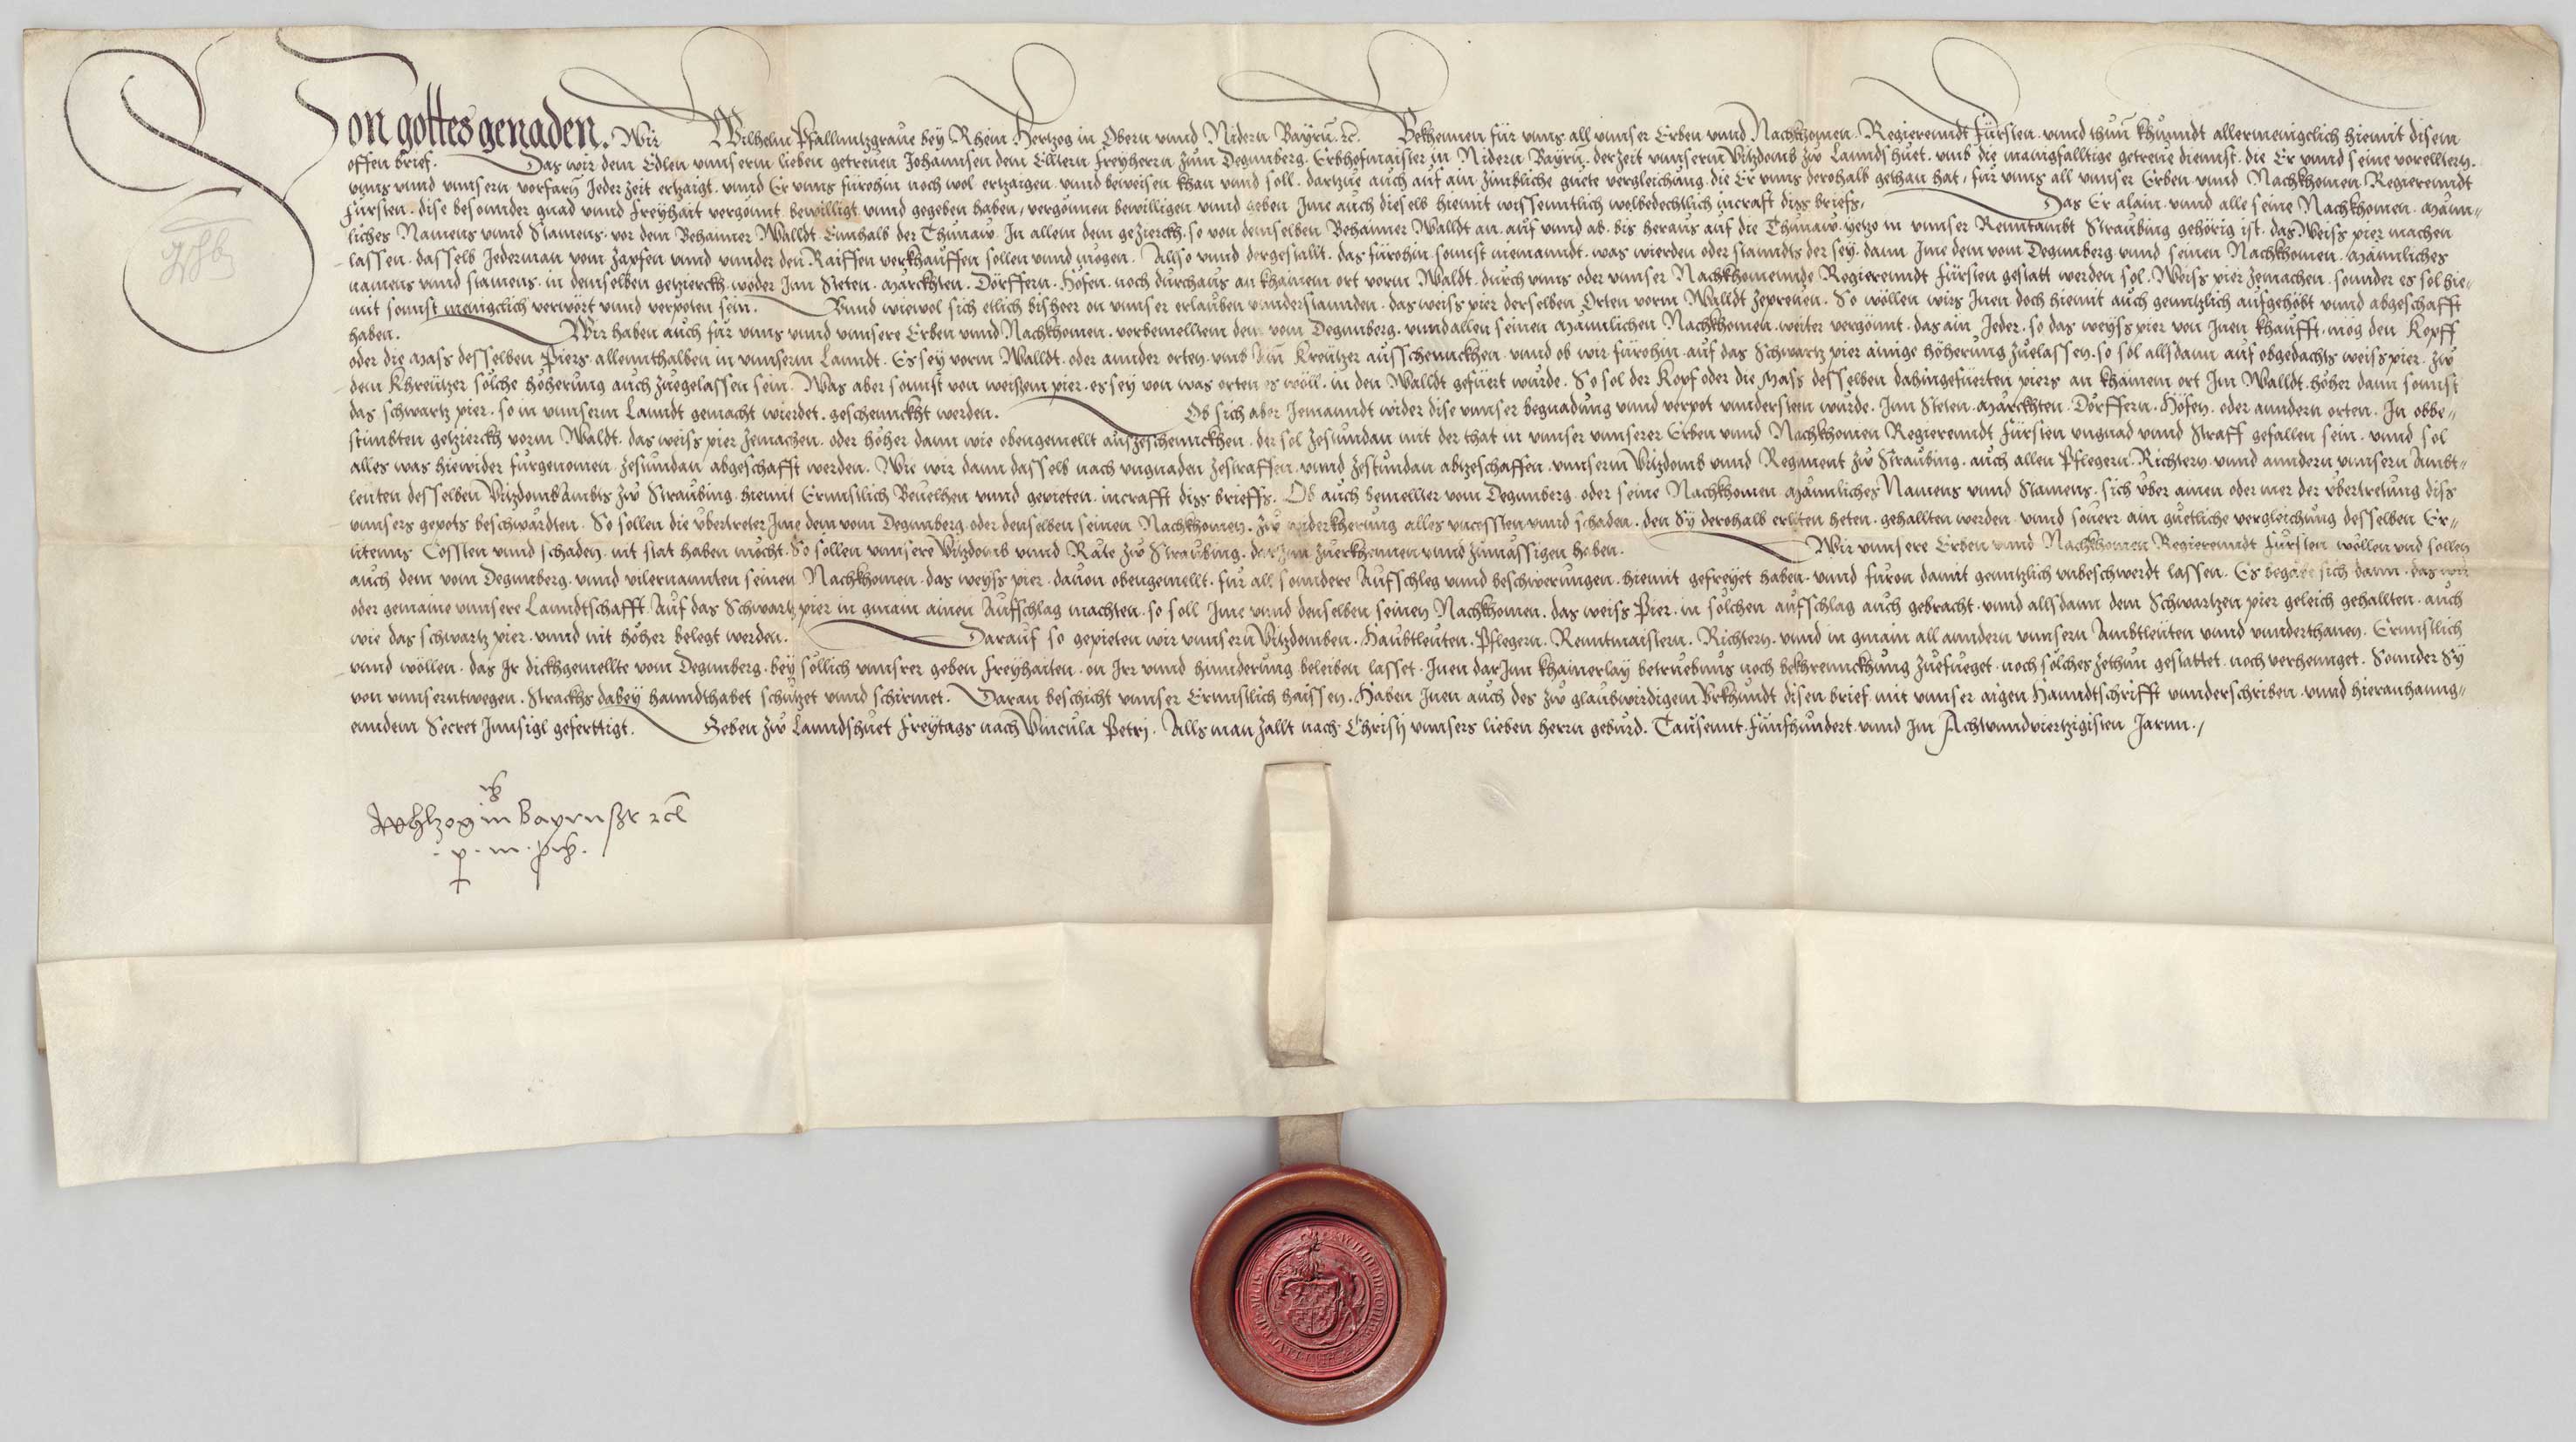 Von gottes genaden. Wir Wilhelm Pfalltzgraue bey Rhein Hertzog in Obern vnnd Nidern Bayrn ꝛc. Bekhennen für vnns all vnnser Erben vnnd Nachkhomen Regierenndt Fürsten vnnd thun khunndt allermenigclich hiemit disem
offen brief. Das wir dem Edlen vnnserm lieben getreuen Johannsen dem Elltern Freyherrn zum Degenberg Erbhofmaister in Nidern Bayrn der zeit vnnserm Vitzdomb zw Lanndshuet. vmb die manigfalltige getreue diennst. die Er vnnd seine vorelltern.
vnns vnnd vnnsern vorfarn Jeder zeit ertzaigt. vnnd Er vnns fürohin noch wol ertzaigen vnnd beweisen khan vnnd soll. dartzue auch auf ain zimbliche guete vergleichung. die Er vnns derohalb gethan hat, für vnns all vnnser Erben vnnd Nachkhomen Regierenndt
fürsten. dise besonnder gnad vnnd Freyhait vergönnt bewilligt vnnd gegeben haben, vergönnen bewilligen vnnd geben Jme auch dieselb hiemit wissenntlich wolbedechtlich incraft diss briefs, Das Er alain vnnd alle seine Nachkhomen. Männ„
liches Namens vnnd Stamens. vor dem Behaimer Walldt Ennhalb der Thunaw. In allem dem gezierckh. so von demselben Behaimer Walldt an. auf vnnd ab. bis heraus auf die Thunaw. yetzo in vnnser Renntambt Straubing gehörig ist. das Weiss pier machen
lassen. dasselb Jederman vom Zapfen vnnd vnnder den Raiffen verkhauffen sollen vnnd mögen. Allso vnnd dergestallt. das fürohin sonnst niemanndt. was wierden oder stanndts der sey. dann Jme dem vom Degenberg vnnd seinen Nachkhomen. Männliches
namens vnnd stamens. in demselben getzierckh. weder Inn Steten. Märckhten. Dörffern. Höfen. noch durchaus an khainem ort vorm Waldt. durch vnns oder vnnser Nachkhomennde Regierenndt Fürsten gestatt werden sol. Weiss pier zemachen. sonnder es sol hie„
mit sonnst menigclich verwört vnnd verpoten sein. Vnnd wiewol sich etlich bisheer on vnnser erlauben vnnderstannden. das weiss pier derselben Orten vorm Walldt zepreuen. So wöllen wirs Inen doch hiemit auch genntzlich aufgehöbt vnnd abgeschafft
haben. Wir haben auch für vnns vnnd vnnsere Erben vnnd Nachkhomen. vorbemelltem dem vom Degenberg. vnnd allen seinen Männlichen Nachkhomen. weiter vergönnt. das ain Jeder. so das weyss pier von Inen khaufft. mog den Kopff
oder die Mass desselben Piers. allennthalben in vnnserm Lanndt. Es sey vorm Walldt. oder annder orten. vmb Kreutzer ausschennckhen. vnnd ob wir fürohin auf das Schwartz pier ainige höherung zuelassen. so sol allsdann auf obgedachts weiss pier. zw
dem Khreutzer solche höherung auch zuegelassen sein. Was aber sonnst von weissem pier. es sey von was orten es wöll. in den Walldt gefüert wurde. So sol der Kopf oder die Mass desselben dahingefüerten piers an khainem ort Im Walldt. höher dann sonnst
das schwartz pier. so in vnnserm Lanndt gemacht wierdet. geschennckht werden. Ob sich aber Jemanndt wider dise vnnser begnadung vnnd verpot vnndersteen wurde. Inn Steten. Märckhten. Dörffern. Höfen. oder anndern orten. In obbe„
stimbten getzierckh vorm Waldt. das weiss pier zemachen. oder höher dann wie obengemellt auszeschennckhen. der sol zestundan mit der that in vnnser vnnserer Erben vnnd Nachkhomen Regierenndt Fürsten vngnad vnnd Straff gefallen sein. vnnd sol
alles was hiewider fürgenomen zestundan abgeschafft werden. Wie wir dann dasselb nach vngnaden zestraffen vnnd zestundan abzeschaffen. vnnserm Vitzdomb vnnd Regiment zw Straubing. auch allen Pflegern. Richtern. vnnd anndern vnnsern Ambt„
leuten desselben Vitzdomb Ambts zw Straubing. hiemit Ernnstlich Beuelhen vnnd gepieten. incrafft diss brieffs. Ob auch bemellter vom Degenberg. oder seine Nachkhomen Männliches Namens vnnd Stamens. sich über ainen oder mer der übertretung diss
vnnsers gepots beschwärdten. So sollen die übertreter Jme dem vom Degenberg. oder denselben seinen Nachkhomen. zw widerkherung alles vncossten vnnd schaden. den Sy derohalb erliten heten. gehallten werden. vnnd souerr ain guetliche vergleichung desselben Er„
litenns Cossten vnnd schaden. nit stat haben möcht. So sollen vnnsere Vitzdomb vnnd Räte zw Straubing. zuerkhennen vnnd zumässigen haben. Wir vnnsere Erben vnnd Nachkhomen Regierenndt Fürsten wöllen vnd sollen
auch dem vom Degenberg. vnnd vilernannten seinen Nachkhomen. das weyss pier. dauon obengemellt. für all sonndere Aufschleg vnnd beschwerungen. hiemit gefreyet haben. vnnd furon damit genntzlich vnbeschwerdt lassen. Es begäbe sich dann. das wir
oder gemaine vnnsere Lanndtschafft. Auf das Schwartz pier in gmain ainen Aufschlag machten. so soll Jme vnnd denselben seinen Nachkhomen. das weiss Pier. in solchen aufschlag auch gebracht. vnnd allsdann dem Schwartzen pier geleich gehallten. auch
wie das schwartz pier. vnnd nit höher belegt werden. Darauf so gepieten wir vnnsern Vitzdomben. Haubtleuten. Pflegern. Renntmaistern. Richtern. vnnd in gmain all anndern vnnsern Ambtleuten vnnd vnnderthanen. Ernnstlich
vnnd wöllen. das Ir dickhgemellte vom Degenberg. bey söllich vnnsrer geben Freyhaiten. on Irr vnnd hinnderung beleiben lasset. Inen darInn khainerlay betruebnus noch bekhrennckhung zuefueget. noch solches zethun gestattet noch verhennget. Sonnder Sy
von vnnserntwegen. Strackhs dabey hanndthabet schützet vnnd schirmet. Daran beschicht vnnser Ernnstlich haissen. Haben Inen auch des zw glaubwirdigem Vrkhundt disen brief mit vnnser aigen Hanndtschrifft vnnderschriben. vnnd hieranhanng„
enndem Secret Innsigl geferttigt. Geben zw Lanndshuet Freytags nach Vincula Petrj. Alls man zallt nach Christj vnnsers lieben herrn geburd. Tausennt. Funfhundert. vnnd Im Achtvnndviertzigisten Jarnn.,
W Hzog in Bayrn ꝛc